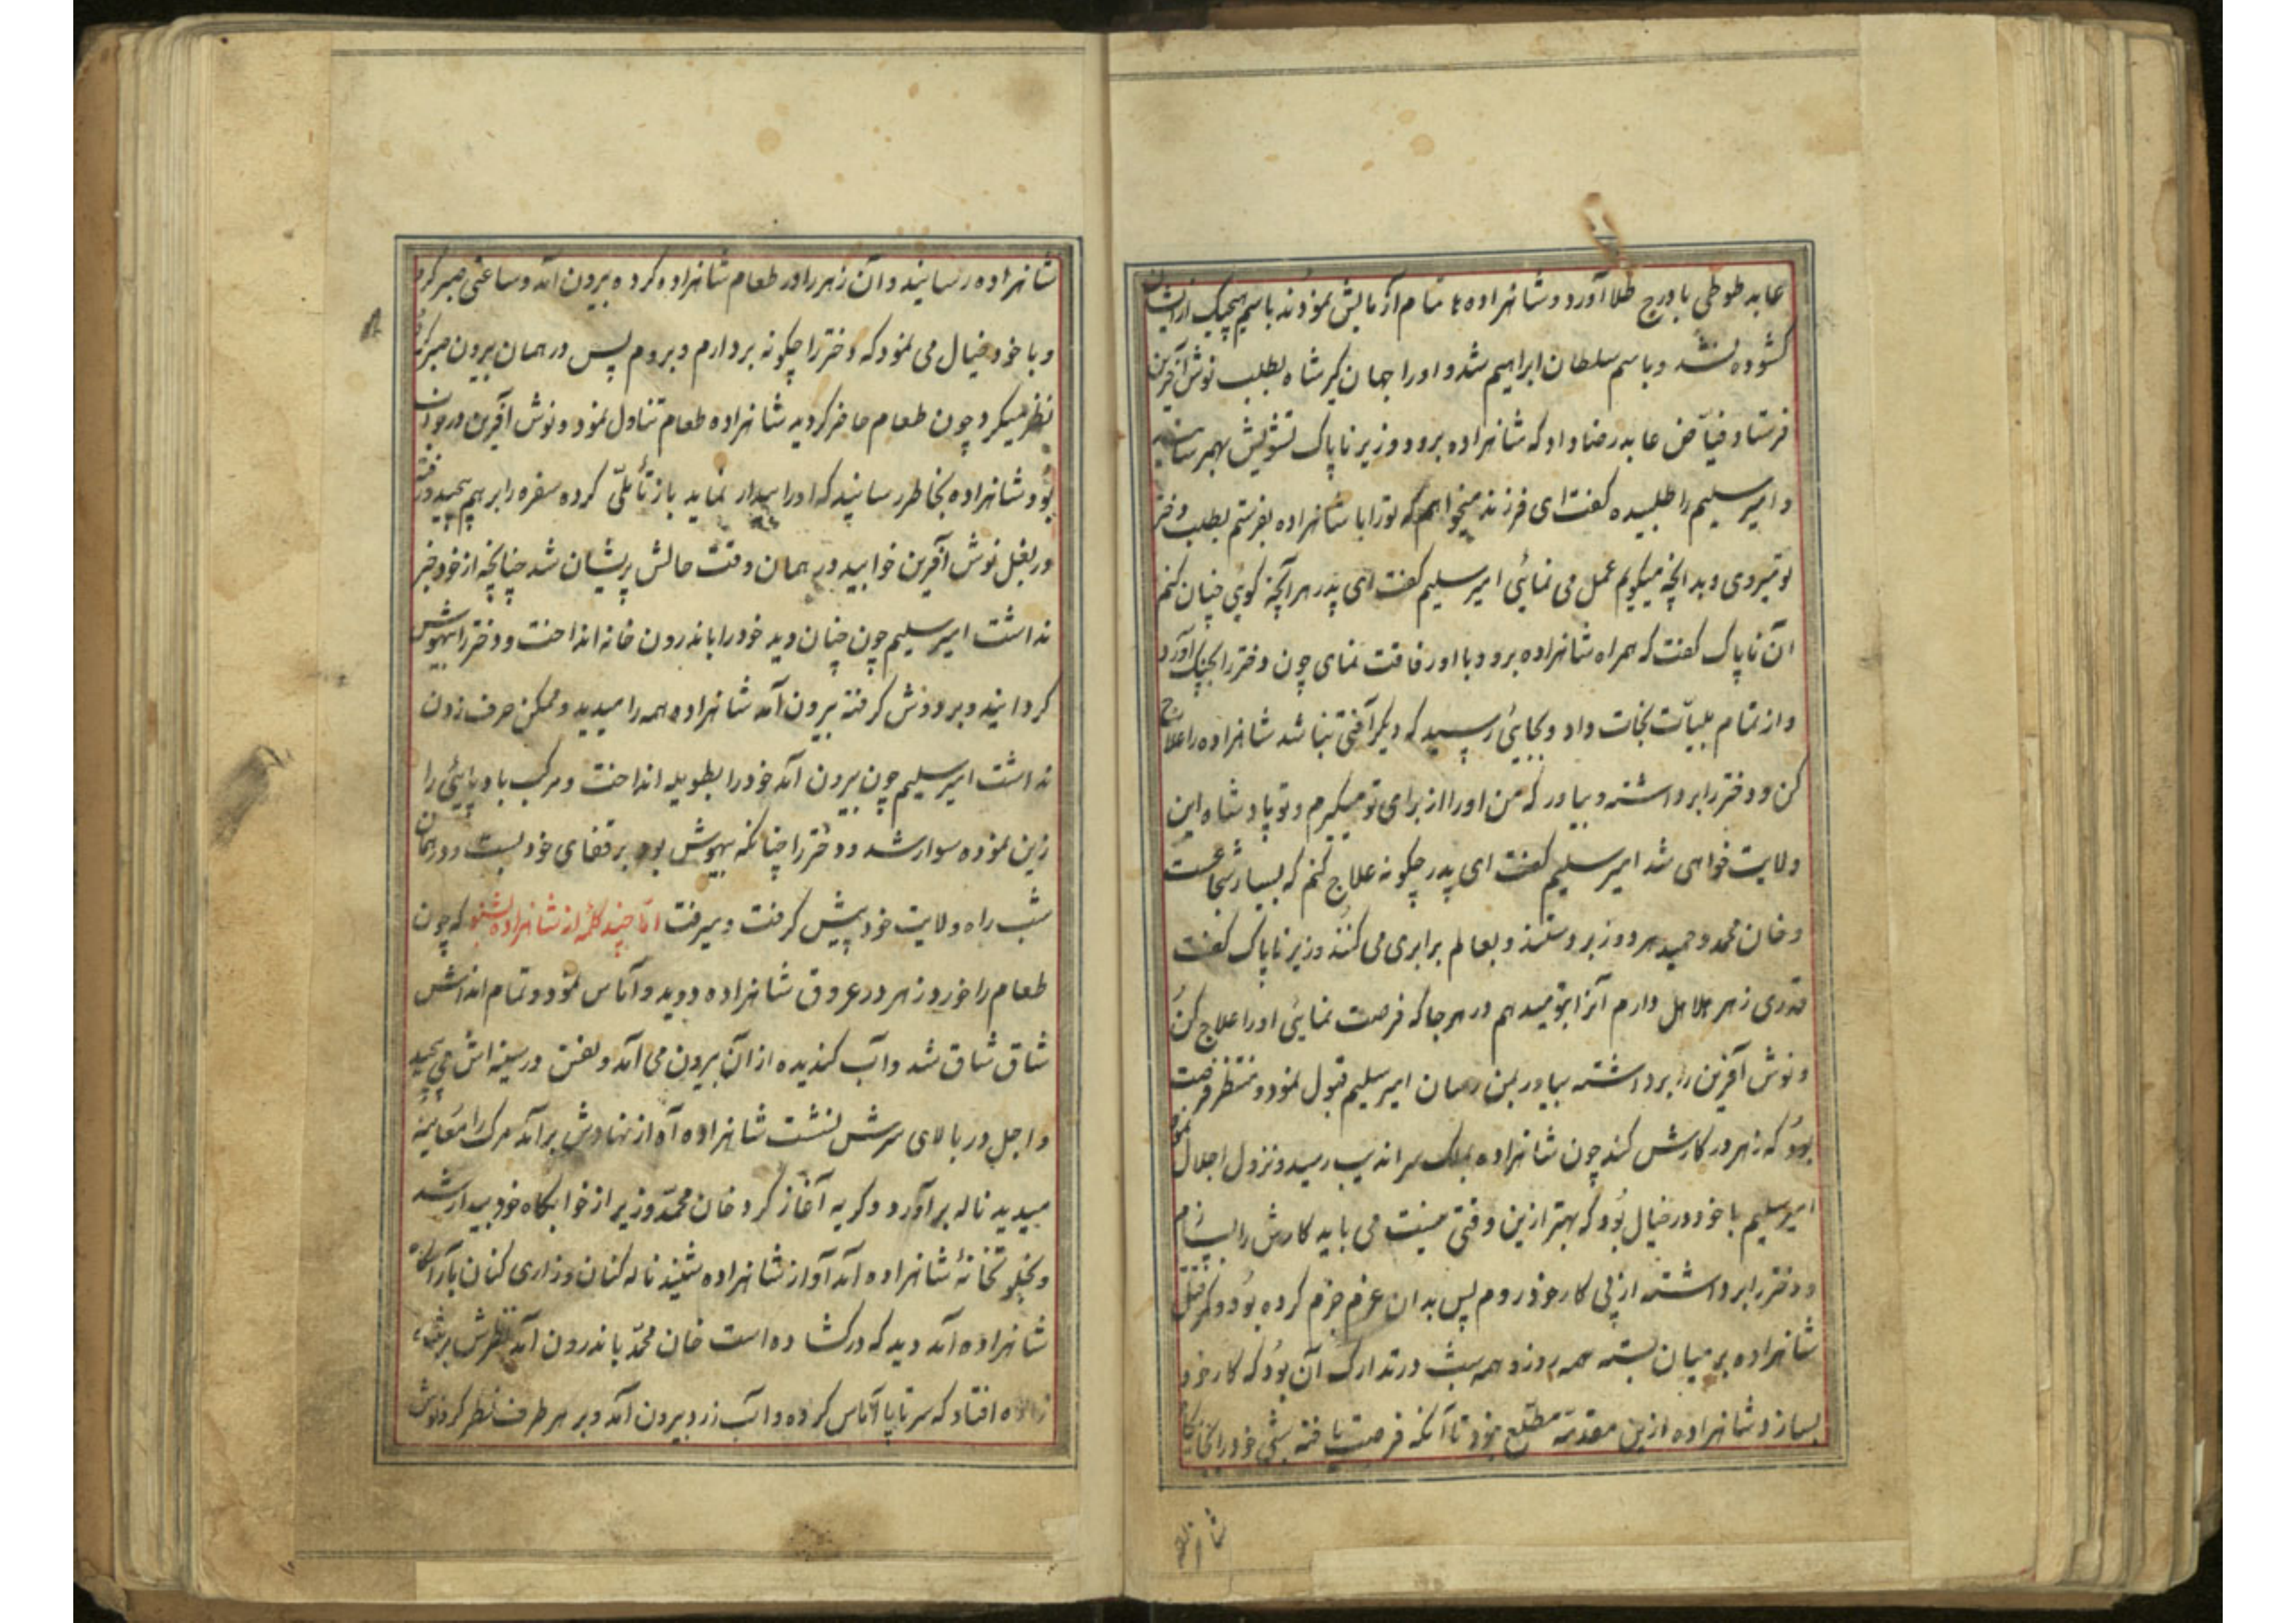 عابد طوطی با درج طلا آورد و شاهزاده ها تمام آزمایش نمودند باسم هیچیک از ایشان
کشوده نشد و باسم سلطان ابراهیم شد و او را جهان کیر شاه بطلب نوش آفرین
فرستاد فیاض عابد رضا داد که شاهزاده برود وزیر ناپاک تشویش بهم رسانید
و امیر سلیم را طلبیده کفت ای فرزند میخواهم که تو را با شاهزاده بفرستم بطلب دختر
تو میروی و بد آنچه میکویم عمل می نمائی امیر سلیم کفت ای پدر هر آنچه کوئی چنان کنم
آن ناپاک کفت که همراه شاهزاده برو و با او رفاقت نمای چون دختر را بچنک آورد
و از تمام بلیات نجات داد و بجایئی رسید که دیکر آفتی نباشد شاهزاده را علاج
کن و دختر را برداشته و بیاور که من او را از برای تو میکیرم و تو پادشاه این
ولایت خواهی شد امیر سلیم کفت ای پدر چکونه علاج کنم که بسیار شجاعست
و خان محمد و حمید هر دو زبر دستند و بعالم برابری می کنند وزیر ناپاک کفت
قدری زهر هلاهل دارم آنرا بتو میدهم در هر جا که فرصت نمایئی او را علاج کن
و نوش آفرین را برداشته بیاور بمن رسان امیر سلیم قبول نمود و منتظر فرصت
بود که زهر در کارش کند چون شاهزاده بملک سراندیب رسید و نزول اجلال نمود
امیر سلیم با خود در خیال بود که بهتر ازین وقتی نیست می باید کارش را بسازم
و دختر را برداشته از پی کار خود روم پس بدان عزم جزم کرده بود و کمر قتل
شاهزاده بر میان بسته همه روز و همه شب در تدارک آن بود که کار خود
بسازد شاهزاده ازین مقدمه مطلع نبود تا آنکه فرصت یافته شبی خود را بخانه
شاهزاده
شاهزاده رسانید و آن زهر را در طعام شاهزاده کرده بیرون آمد و ساعتی صبر کرد
و با خود خیال می نمود که دختر را چکونه بردارم و بروم پس در همان بیرون صبر کرده
نظر میکرد چون طعام حاضر کردید شاهزاده طعام تناول نمود و نوش آفرین در خواب
بود شاهزاده بخاطر رسانید که او را بیدار نماید باز تأملی کرده سفره را بر هم پیچید و رفته
در بغل نوش آفرین خوابید در همان وقت حالش پریشان شد چنانچه از خود خبر
نداشت امیر سلیم چون چنان دید خود را باندرون خانه انداخت و دختر را بیهوش
کردانید و بر دوش کرفته بیرون آمد شاهزاده همه را میدید و ممکن حرف زدن
نداشت امیر سلیم چون بیرون آمد خود را بطویله انداخت و مرکب باد پایئی را
زین نموده سوار شد و دختر را چنانکه بیهوش بود بر قفای خود بست و در همان
شب راه ولایت خود پیش کرفت و میرفت اما چند کلمه از شاهزاده بشنو که چون
طعام را خورد زهر در عروق شاهزاده دوید و آماس نمود و تمام اندامش
شاق شاق شد و آب کندیده از آن بیرون می آمد و نفس در سینه اش می پیچید
و اجل در بالای سرش نشست شاهزاده آه از نهادش بر آمد مرک را معاینه
میدید ناله بر آورد و کریه آغاز کرد خان محمد وزیر از خوابکاه خود بیدار شد
و بخلوتخانهٔ شاهزاده آمد آواز شاهزاده شنید ناله کنان و زاری کنان بآرامکاه
شاهزاده آمد دید که در کشاده است خان محمد باندرون آمد نظرش بر
افتاد که سر تا پا آماس کرده و آب زرد بیرون آمد و بر هر طرف نظر کرد نوش